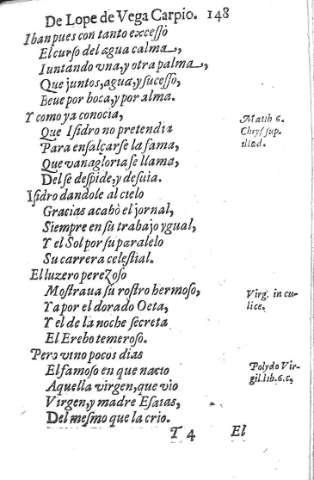 De Lope de Vega Carpio. 148
Iban pues con tanto excesso
El curso del agua calma,
Iuntando vna, y otra palma,
Que juntos, agua, y sucesso,
Beue por boca, y por alma.
Y como ya conocia,
Que Isidro no pretendia
Para ensalçarse la fama,
Que vanagloria se llama,
Del se despide, y desuia.
Isidro dandole al cielo
Gracias acabò el jornal,
Siempre en su trabajo ygual,
Y el Sol por su paralelo
Su carrera celestial.
El luzero perezoso
Mostraua su rostro hermoso,
Ya por el dorado Oeta,
Y el de la noche secreta
El Erebo temeroso.
Pero vino pocos dias
El famoso en que nacio
Aquella virgen, que vio
Virgen, y madre Esaias,
Del mesmo que la crio.
T 4 El
Matth 6.
Chrys sup.
illud.
Virg. in cu-
lice.
Polydo Vir-
gil. lib. 6. c,